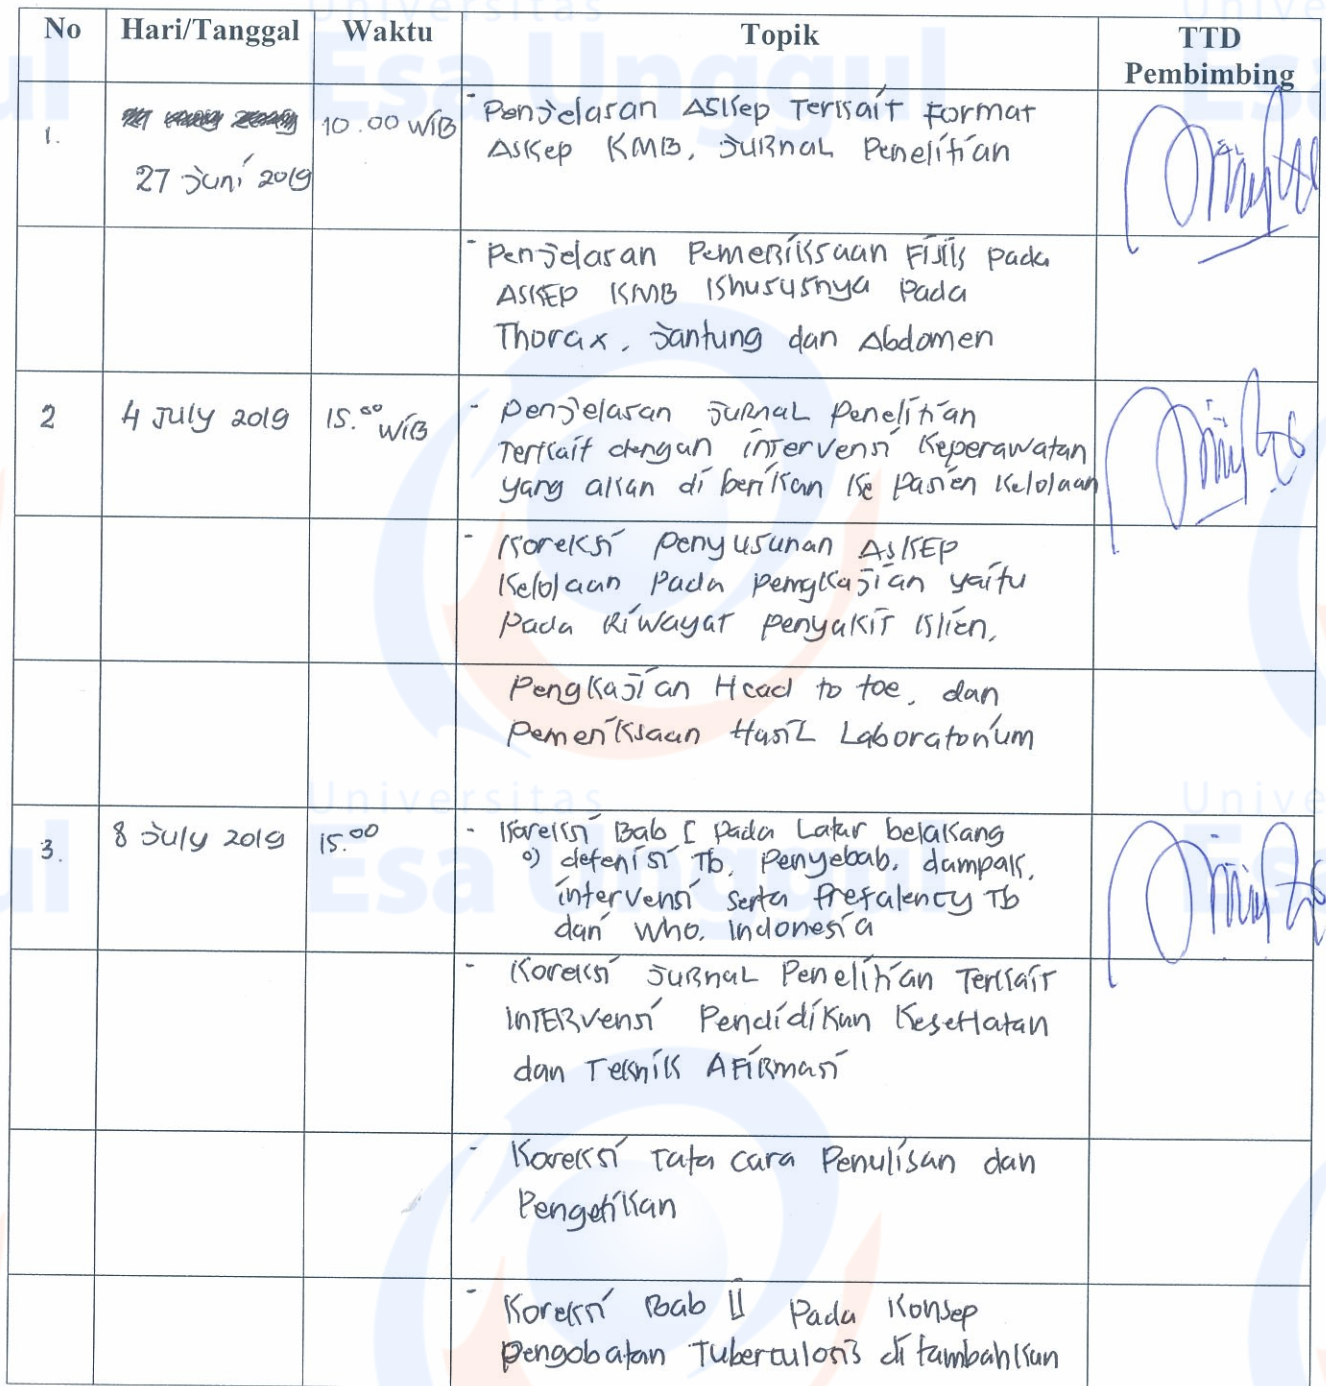 No Hari/Tanggal Waktu Topik TTD Pembimbing
1. 27 Juni 2019 10.00 WIB - Penjelasan Askep Terkait Format
Askep KMB, Jurnal Penelitian
- Penjelasan Pemeriksaan Fisik pada
ASKEP KMB Khususnya Pada
Thorax, Jantung dan Abdomen
2 4 July 2019 15.00 WIB - Penjelasan Jurnal Penelitian
Terkait dengan intervensi Keperawatan
yang akan di berikan Ke Pasien Kelolaan
- Koreksi Penyusunan ASKEP
Kelolaan Pada pengkajian yaitu
Pada Riwayat Penyakit Klien,
Pengkajian Head to toe, dan
Pemeriksaan Hasil Laboratorium
3. 8 July 2019 15.00 - Koreksi Bab I pada Latar belakang
o) defenisi Tb, Penyebab, dampak,
intervensi serta Prefalency Tb
dari Who, Indonesia
- Koreksi Jurnal Penelitian Terkait
INTERvensi Pendidikan Kesehatan
dan Teknik Afirmasi
- Koreksi Tata cara Penulisan dan
Pengetikan
- Koreksi Bab II Pada Konsep
Pengobatan Tuberculosis di tambahkan
Universitas
Esa Unggul